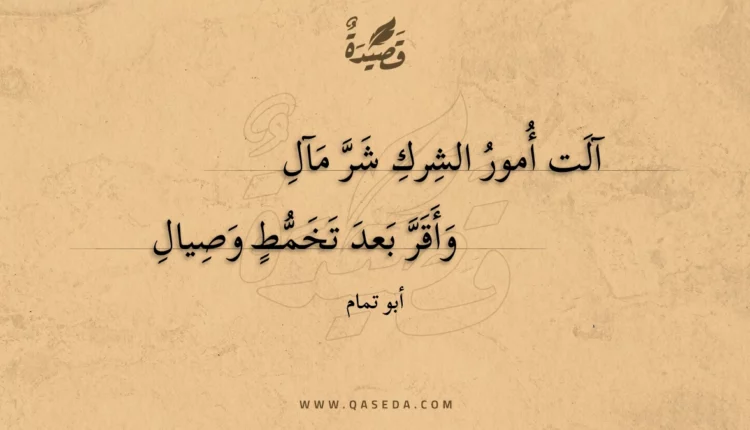 قَصِيدَةٌ
آلَت أُمورُ الشِركِ شَرَّ مَآلِ
وَأَقَرَّ بَعدَ تَخَمُّطٍ وَصِيالِ
أبو تمام
WWW.QASEDA.COM